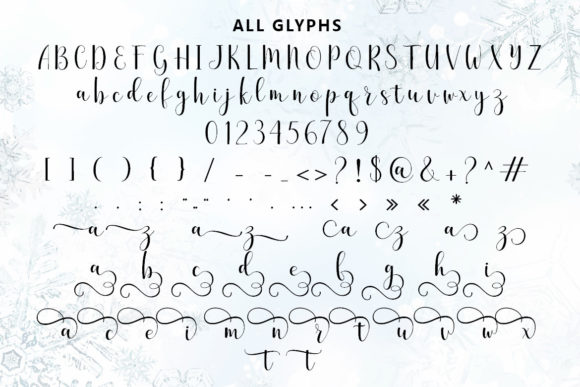 ALL GLYPHS
ABCDEFGHIJKLMNOPQRSTUVWXYZ
abcdefghijklmnopqrstuvwxyz
0123456789
[ ] ( ) { } / - - _ < > ? ! $ @ & + ? ^ #
. . : : " - " ' ' . . ... < > » « *
a z a z Ca Cz a z
a b c d e f g h i
a c e i m n r t u v w x
t t